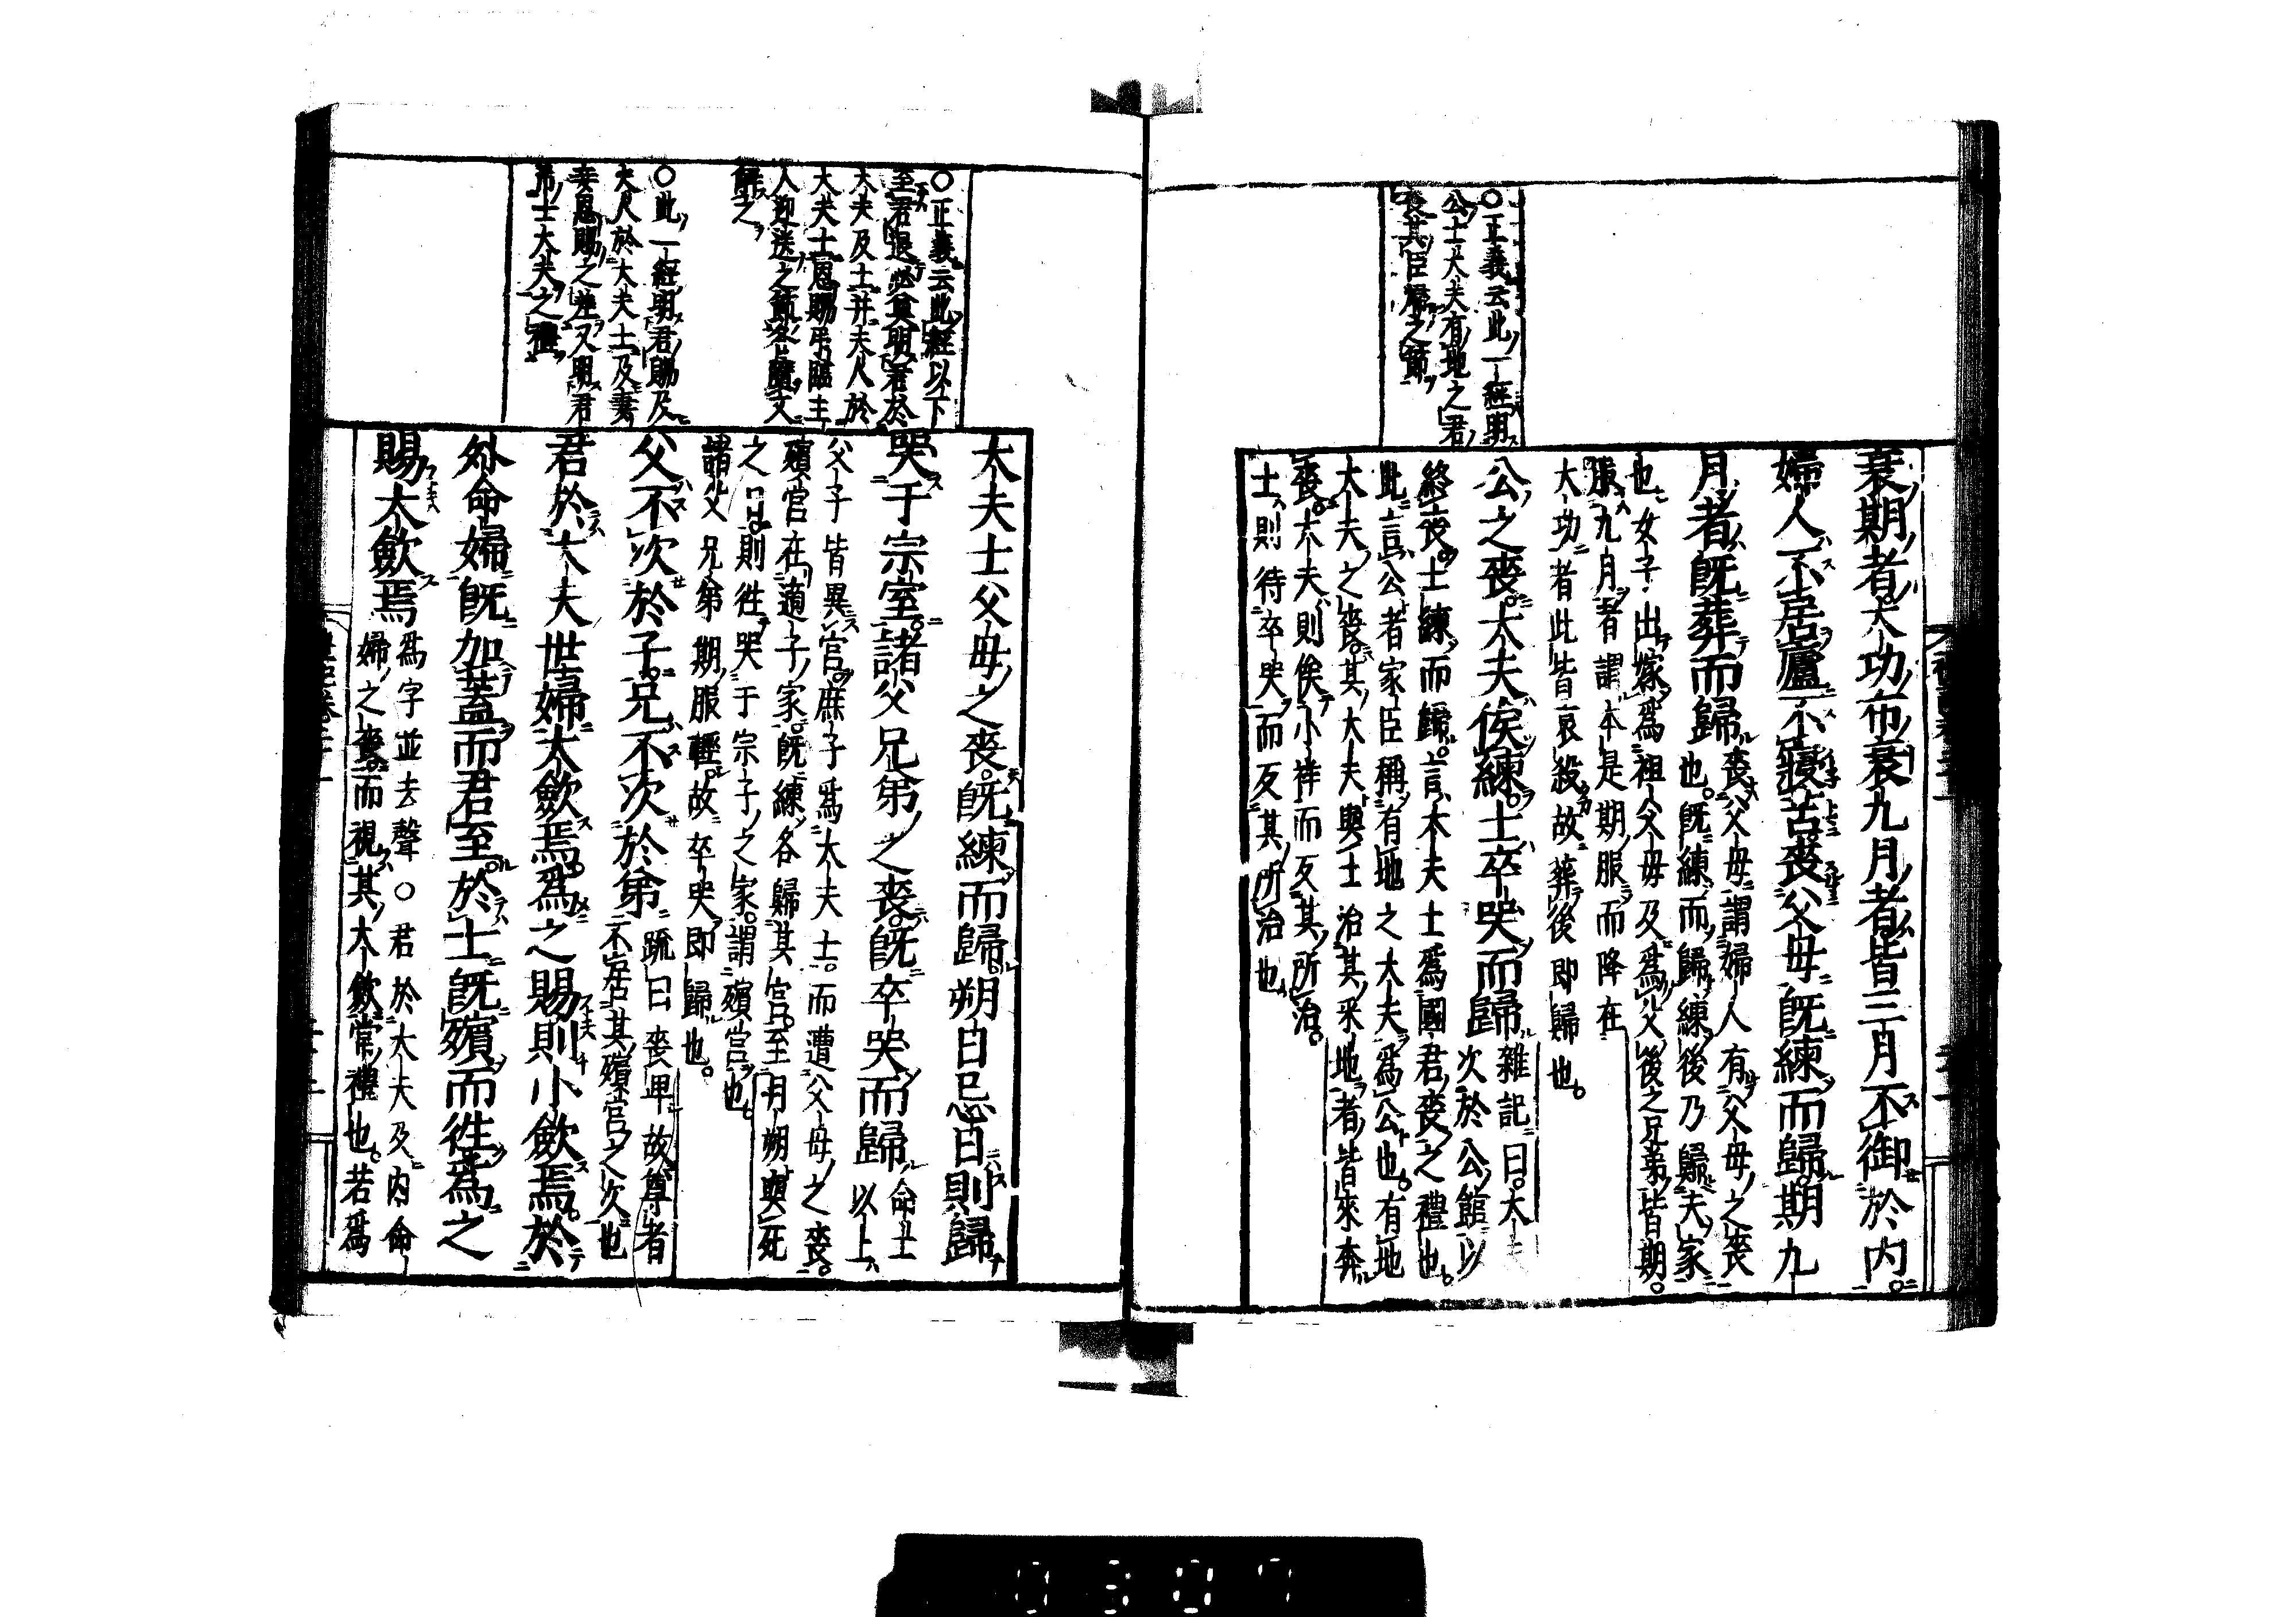 ○正義云此一經明
公士大夫有地之君
喪其臣歸之節
衰期者大功布衰九月者皆三月不御於内
婦人不居廬不寢苫喪父母既練而歸期九
月者既葬而歸
喪父母謂婦人有父母之喪
也既練而歸練後乃歸夫家
也女子出嫁爲祖父母及爲父後之兄弟皆期
服九月者謂本是期服而降在
大功者此皆哀殺故葬後即歸也
公之喪大夫俟練士卒哭而歸
雜記曰大夫
次於公館以
終喪士練而歸言大夫士爲國君喪之禮也
此言公者家臣稱有地之大夫爲公也有地
大夫之喪其大夫與士治其采地者皆來奔
喪大夫則俟小祥而反其所治
士則待卒哭而反其所治也
○正義云此經以下
至君退必奠明君於
大夫及士并夫人於
大夫士恩賜弔臨主
人迎送之節各隨文
解之
○此一經明君賜及
夫人於大夫士及妻
妾恩賜之差又明君
弔士大夫之禮
大夫士父母之喪既練而歸朔日忌日則歸
哭于宗室諸父兄弟之喪既卒哭而歸
命士
以上
父子皆異宮庶子爲大夫士而遭父母之喪
殯宮在適子家既練各歸其宮至月朔與死
之日則往哭于宗子之家謂殯宮也
諸父兄弟期服輕故卒哭即歸也
父不次於子兄不次於弟
疏曰喪卑故尊者
不居其殯宮之次也
君於大夫世婦大斂焉爲之賜則小斂焉於
外命婦既加蓋而君至於士既殯而往爲之
賜大斂焉
爲字並去聲○君於大夫及内命
婦之喪而視其大斂常禮也若爲